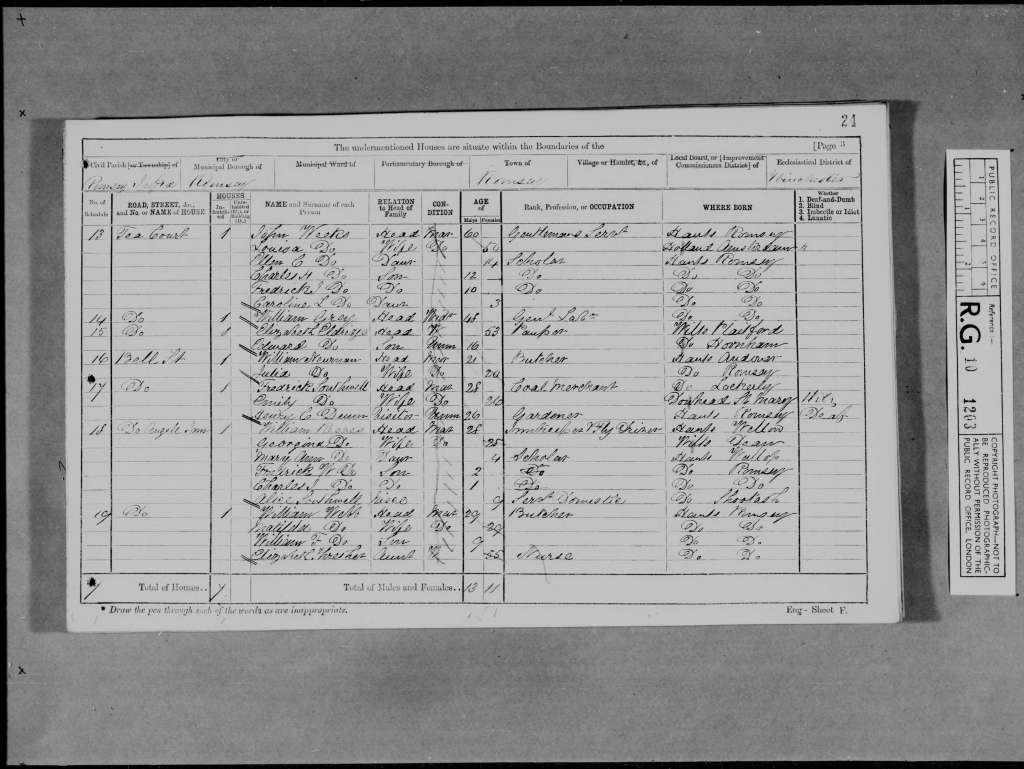 21
The undermentioned Houses are situate within the Boundaries of the [Page 3
Civil Parish [or Township] of City or Municipal Borough of Municipal Ward of Parliamentary Borough of Town of Village or Hamlet, &c., of Local Board, or [Improvement Commissioners District] of Ecclesiastical District of
Romsey Infra Romsey Romsey Winchester
No. of Schedule ROAD, STREET, &c., and No. or NAME of HOUSE HOUSES Inhabited Uninhabited (U.), or Building (B.) NAME and Surname of each Person RELATION to Head of Family CONDITION AGE of Males Females Rank, Profession, or OCCUPATION WHERE BORN Whether 1. Deaf-and-Dumb 2. Blind 3. Imbecile or Idiot 4. Lunatic
13 Tea Court 1 John Weeks Head Mar 60 Gentlemans Servt Hants Romsey
Louisa Do Wife Do Holland Amsterdam
Ellen C Do Daur 14 Scholar Hants Romsey
Charles H Do Son 12 Do Do Do
Fredrick J Do Do 10 Do Do Do
Caroline L Do Daur 3 Do Do
14 Do 1 William Grey Head Widr 48 Genl Labr Do Do
15 Do 1 Elizabeth Eldridge Head W 53 Pauper Wilts
Edward Do Son Unm 16 Do
16 Bell St 1 William Newman Head Mar 21 Butcher Hants Andover
Julia Do Wife Do 20 Do Romsey
17 Do 1 Fredrick Southwell Head Mar 28 Coal Merchant Do Lockerly
Emily Do Wife Do 26 Donhead St Mary
Henry C Visitor Unm 26 Gardener Hants Romsey
18 Do Angel Inn 1 William Head Mar 28 Innkeeper & Fly Driver Hants
Georgina Do Wife Do 25 Wilts Dean
Mary Ann Do Daur 4 Scholar Hants Wallop
Fredrick W Do Son 2 Do Do Romsey
Charles Do Do 1 Do Do Do
Alice Southwell Niece 9 Servt Domestic Do
19 Do 1 William Webb Head Mar 29 Butcher Hants Romsey
Matilda Do Wife Do 29 Do Do
William F Do Son 9 Do Do
Elizabeth Thresher Aunt W 55 Nurse Do Do
7 Total of Houses.. 7 Total of Males and Females.. 13 11
* Draw the pen through such of the words as are inappropriate. Eng—Sheet F.
PUBLIC RECORD OFFICE
1 2 3 4 5 6
Reference :—
R.G. 10 1203
COPYRIGHT PHOTOGRAPH—NOT TO BE REPRODUCED PHOTOGRAPHICALLY WITHOUT PERMISSION OF THE PUBLIC RECORD OFFICE, LONDON